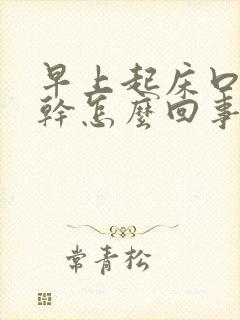 早上起床口
幹怎麼回事
常青松